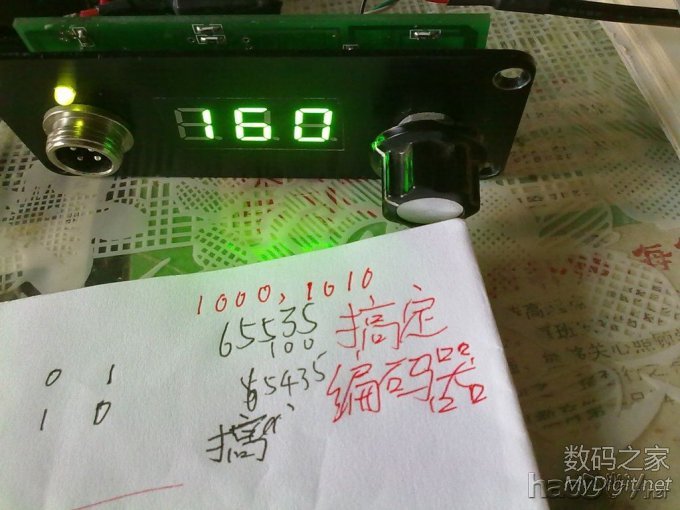 160
1000, 1010
65535 搞定
100
0 1 65435 编码器
1 0 搞
数码之家
MyDigit.net